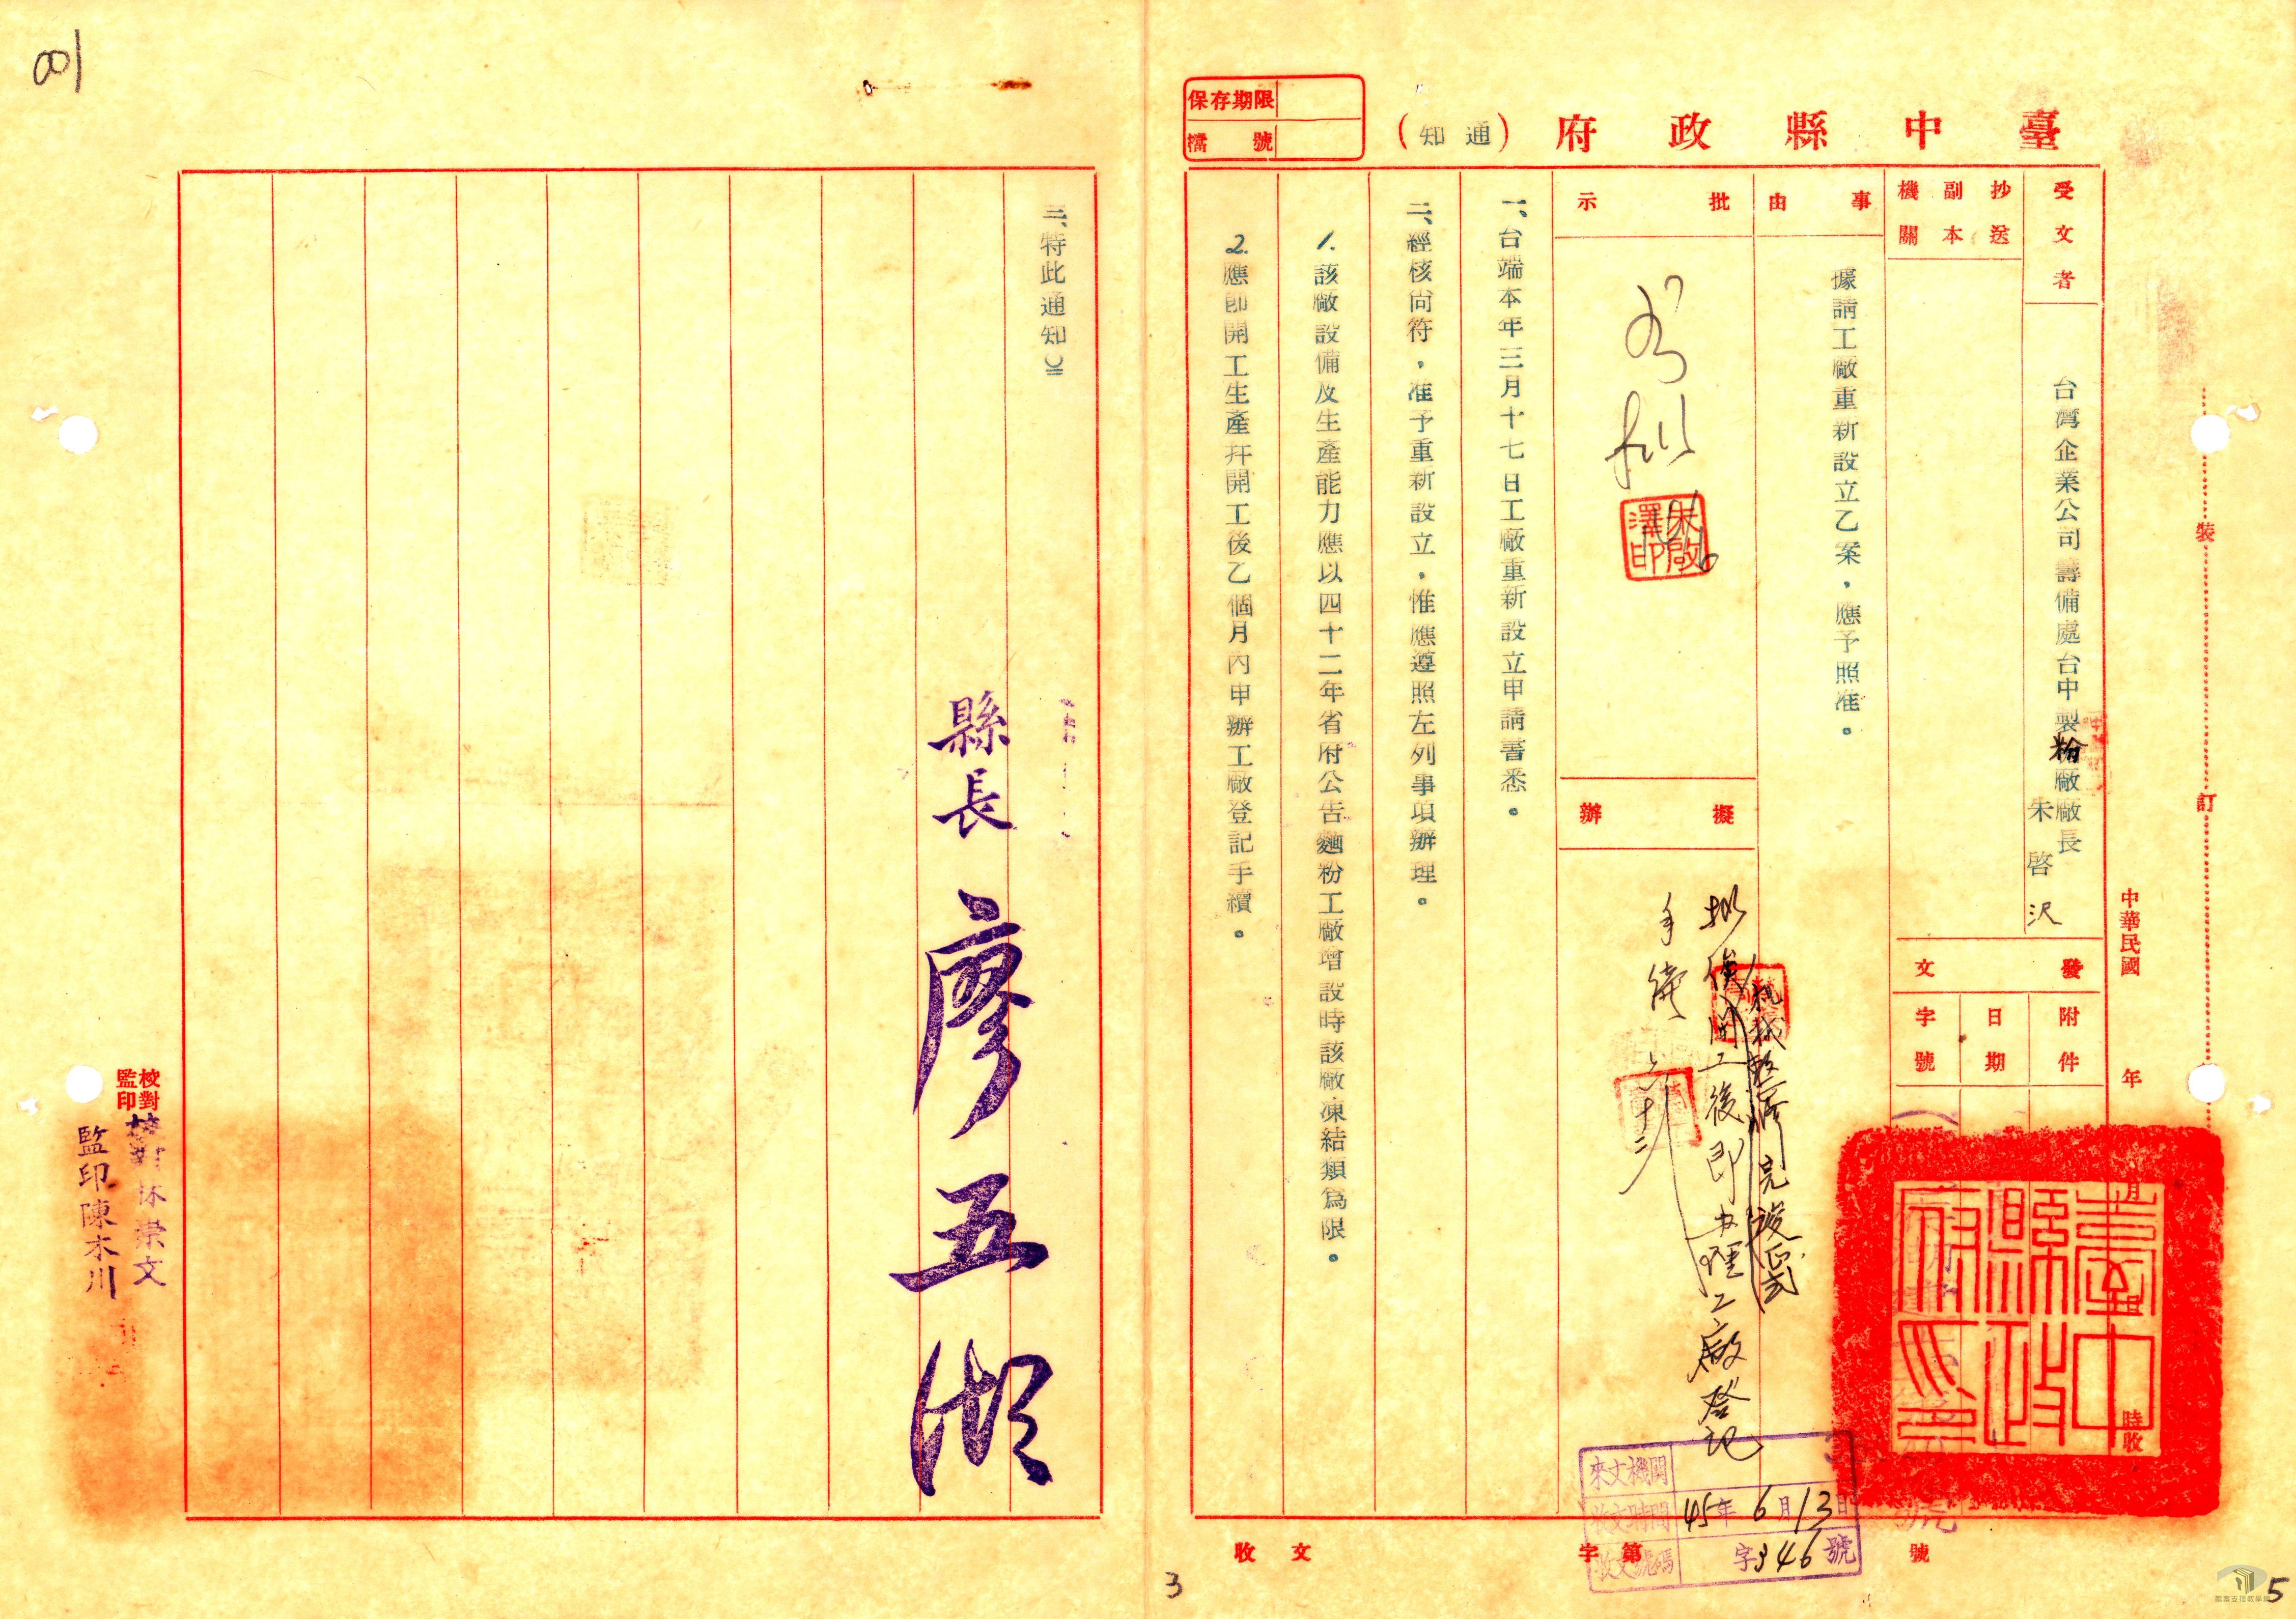 臺中縣政府(通知)
保存期限
檔號
受文者
台灣企業公司籌備處台中製粉廠廠長
朱啓沢
抄送副本機關
事由
據請工廠重新設立乙案，應予照准。
批示
如拟
朱啟澤印
擬辦
拟俟開工後即办理工廠登記
手續
六、十三
機械整修完竣正式
中華民國 年 月 日 時收
發文
附件
日期
字號
臺中縣政府印
一、台端本年三月十七日工廠重新設立申請書悉。
二、經核尚符，准予重新設立，惟應遵照左列事項辦理。
1.該廠設備及生產能力應以四十二年省府公告麵粉工廠增設時該廠凍結類為限。
2.應即開工生產幷開工後乙個月內申辦工廠登記手續。
三、特此通知
縣長 廖五湖
校對
監印
校對林崇文
監印陳木川
來文機關
收文時間 45年6月13日
收文號碼 字346號
收文 字第 號
裝
訂
001
3
5